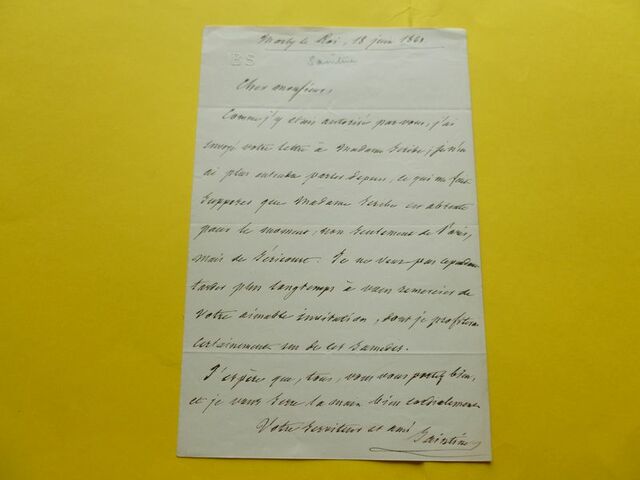 Marly le Roi, 18 juin 186
BS
Saintine
Cher monsieur,
Comme j'y étais autorisé par vous, j'ai
envoyé votre lettre à Madame Scribe; Je n'en
ai plus entendu parler depuis, ce qui me fait
supposer que Madame Scribe est absente
pour le moment, non seulement de Paris,
mais de Séricourt. Je ne veux pas cependant
tarder plus longtemps à vous remercier de
votre aimable invitation, dont je profiterai
certainement un de ces Samedis.
J'espère que, tous, vous vous portez bien,
et je vous serre la main bien cordialement
Votre serviteur et ami
Saintine